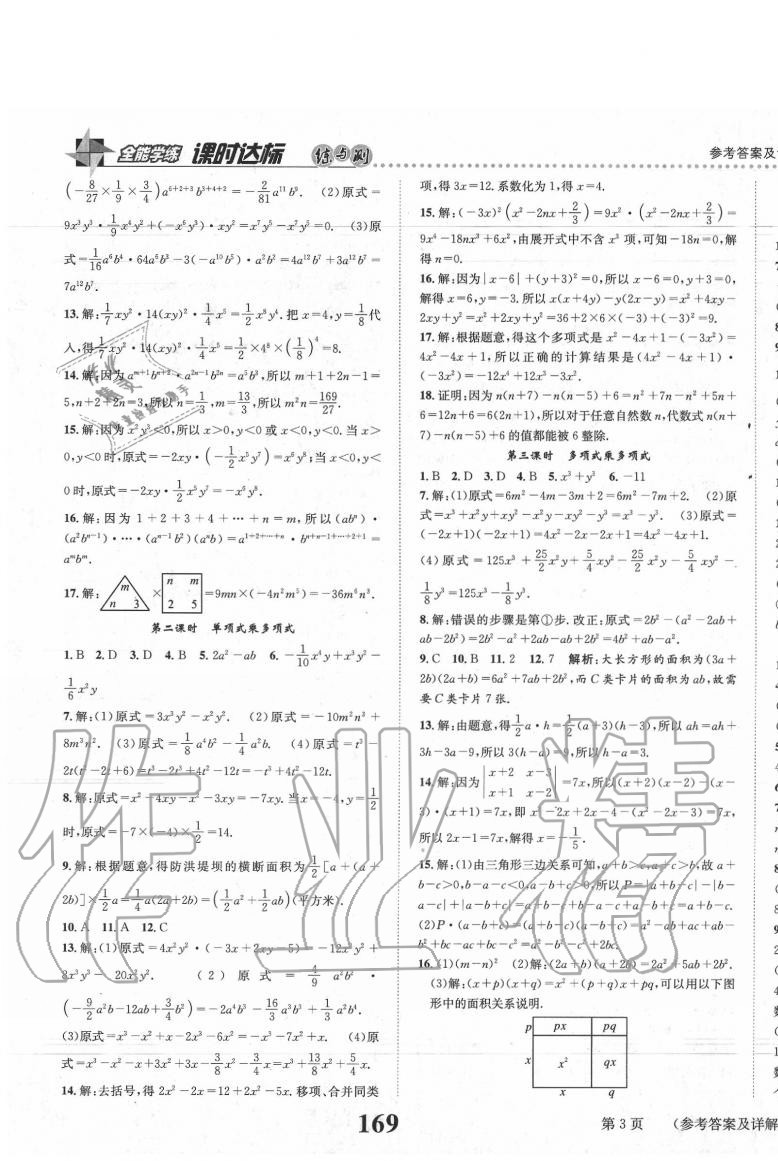 全能学练 课时达标 练与测
参考答案及
(-8/27×1/9×3/4)a⁶⁺²⁺³b³⁺⁴⁺²=-2/81a¹¹b⁹. (2)原式=
9x³y³·1/9x⁴y²+(-x⁶y³)·xy²=x⁷y⁵-x⁷y⁵=0. (3)原
式=1/16a⁶b⁴·64a⁶b³-3(-a¹⁰b⁵)·a²b²=4a¹²b⁷+3a¹²b⁷=
7a¹²b⁷.
13.解:1/7xy²·14(xy)²·1/4x⁵=1/2x⁸y⁴.把x=4,y=1/8代
入,得1/7xy²·14(xy)²·1/4x⁵=1/2×4⁸×(1/8)⁴=8.
14.解:因为aᵐ⁺¹bⁿ⁺²·a²ⁿ⁻¹b²ⁿ=a⁵b³,所以m+1+2n-1=
5,n+2+2n=3,所以n=1/3,m=13/3,所以m²n=169/27.
15.解:因为x³y⁵<0,所以x>0,y<0或x<0,y<0.当x>
0,y<0时,原式=-2xy·(-1/2x⁵y⁷)=x⁶y⁸;当x<0,y<
0时,原式=-2xy·1/2x⁵y⁷=-x⁶y⁸.
16.解:因为1+2+3+4+…+n=m,所以(abⁿ)·
(a²bⁿ⁻¹)·…·(aⁿ⁻¹b²)(aⁿb)=a¹⁺²⁺…⁺ⁿ·bⁿ⁺ⁿ⁻¹⁺…⁺²⁺¹=
aᵐbᵐ.
17.解: m n 3 × n m 2 5 =9mn×(-4n²m⁵)=-36m⁶n³.
第二课时 单项式乘多项式
1.B 2.D 3.D 4.B 5.2a²-ab 6.-1/10x⁴y+x³y²-
1/6x²y
7.解:(1)原式=3x³y²-x²y². (2)原式=-10m²n³+
8m³n². (3)原式=1/8a⁴b²-1/4a²b. (4)原式=t³-
2t(t²-2t+6)=t³-2t³+4t²-12t=-t³+4t²-12t.
8.解:原式=x²-4xy-x²-3xy=-7xy.当x=-4,y=1/2
时,原式=-7×(-4)×1/2=14.
9.解:根据题意,得防洪堤坝的横断面积为1/2[a+(a+
2b)]×1/2a=1/4a(2a+2b)=(1/2a²+1/2ab)(平方米).
10.A 11.A 12.C
13.解:(1)原式=4x²y²·(-3x+2xy-5)=-12x³y²+
8x³y³-20x²y². (2)原式=4/9a²b²·
(-9/2a²b-12ab+3/4b²)=-2a⁴b³-16/3a³b³+1/3a²b⁴.
(3)原式=x³-x²+x-2x³-6x²=-x³-7x²+x. (4)原
式=x³-x²-x+3x²+3x-3/8x²-3/4x=x³+13/8x²+5/4x.
14.解:去括号,得2x²-2x=12+2x²-5x.移项、合并同类
项,得3x=12.系数化为1,得x=4.
15.解:(-3x)²(x²-2nx+2/3)=9x²·(x²-2nx+2/3)=
9x⁴-18nx³+6x²,由展开式中不含x³项,可知-18n=0,解
得n=0.
16.解:因为|x-6|+(y+3)²=0,所以x-6=0,y+3=0,
解得x=6,y=-3.所以x(x+4y)-y(2x-y)=x²+4xy-
2xy+y²=x²+2xy+y²=36+2×6×(-3)+(-3)²=9.
17.解:根据题意,得这个多项式是x²-4x+1-(-3x²)=
4x²-4x+1,所以正确的计算结果是(4x²-4x+1)·
(-3x²)=-12x⁴+12x³-3x².
18.证明:因为n(n+7)-n(n-5)+6=n²+7n-n²+5n+
6=12n+6=6(2n+1),所以对于任意自然数n,代数式n(n+
7)-n(n-5)+6的值都能被6整除.
第三课时 多项式乘多项式
1.B 2.D 3.D 4.B 5.x³+y³ 6.-11
7.解:(1)原式=6m²-4m-3m+2=6m²-7m+2. (2)原
式=x³+x²y+xy²-x²y-xy²-y³=x³-y³. (3)原式=
(-2x+1)(-2x+1)=4x²-2x-2x+1=4x²-4x+1.
(4)原式=125x³+25/2x²y+5/4xy²-25/2x²y-5/4xy²-
1/8y³=125x³-1/8y³.
8.解:错误的步骤是第①步.改正:原式=2b²-(a²-2ab+
ab-2b²)=2b²-a²+2ab-ab+2b²=4b²+ab-a².
9.C 10.B 11.2 12.7 解析:大长方形的面积为(3a+
2b)(2a+b)=6a²+7ab+2b²,而C类卡片的面积为ab,故需
要C类卡片7张.
13.解:由题意,得1/2a·h=1/2(a+3)(h-3),所以ah=ah+
3h-3a-9,所以3(h-a)=9,所以h-a=3.
14.解:因为|x+2 x-3 x+1 x-2|=7x,所以(x+2)(x-2)-(x-
3)·(x+1)=7x,即x²-2x+2x-4-(x²-2x-3)=7x,
所以2x-1=7x,解得x=-1/5.
15.解:(1)由三角形三边关系可知,a+b>c,a+c>b,故a+
b-c>0,b-a-c<0,a-b+c>0,所以P=|a+b-c|-|b-
a-c|+|a-b+c|=a+b-c+b-a-c+a-b+c=a+b-c.
(2)P·(a-b+c)=(a+b-c)(a-b+c)=a²-ab+ac+ab-
b²+bc-ac+bc-c²=a²-b²-c²+2bc.
16.(1)(m-n)² (2)解:(2a+b)(a+2b)=2a²+5ab+2b².
(3)解:(x+p)(x+q)=x²+(p+q)x+pq,可以用以下图
形中的面积关系说明.
p px pq
x x² qx
x q
169
第3页 (参考答案及详解
作业精